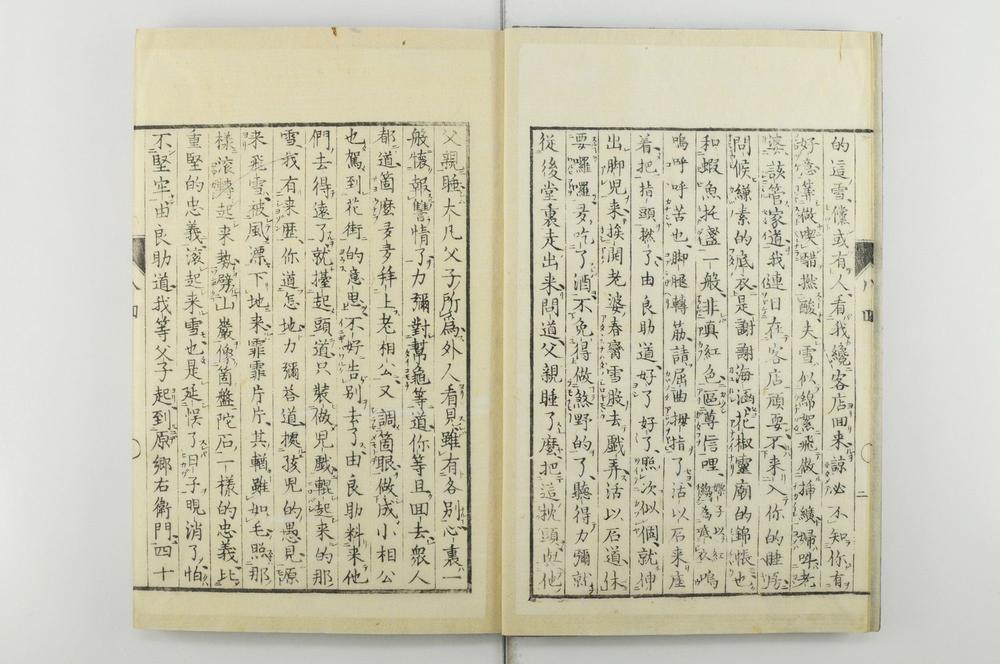 的這雪、儻或有人看我纔客店回来、諒必不知你有
好意、葉做喫醋撚酸、夫雪似綿絮飛、做揷縫婦呌老
婆、該管家道、我連日在客店頑耍、不来入你的睡房、
問候緣素的底衣、是謝謝海涵、花椒靈廟的錦帳也
和蝦魚托盞一般、非眞紅色、區尊信哩、
嗚呼呼苦也、脚腿轉筋、請屈曲拇指了、活以石来座
着、把指頭撚了、由良助道、好了好了、照次似個就伸
出脚児来、挨開老婆春臀雪股去戯弄、活以石道、休
要囉囉、多吃了酒、不免得做煞野的了、聽得力彌就
從後堂裏走出来、問道、父親睡了麽、把這枕頭與他
父親睡、大凡父子所爲、外人看見、雖有各別、心裏一
般懐報讐情了、力彌對幫龜等道、你等且回去、衆人
都道箇麽、多多拜上老相公、又調箇眼、做成小相公
也駕到花街的意思、不好告別去了、由良助料来他
們去得遠了、就擡起頭道、只裝做児戯、輥起来的那
雪、我有来歴、你道怎地、力彌答道、據孩児的愚見、原
来飛雪、被風漂下地来、霏霏片片、其輶雖如毛、照那
樣滚轉起来、勢劈山巖、像箇盤陀石、一樣的忠義、比
重堅的忠義、滚起来雪、也是延悞了日子、晛消了、怕
不堅牢、由良助道、我等父子、起到原郷右衛門、四十
八四
二